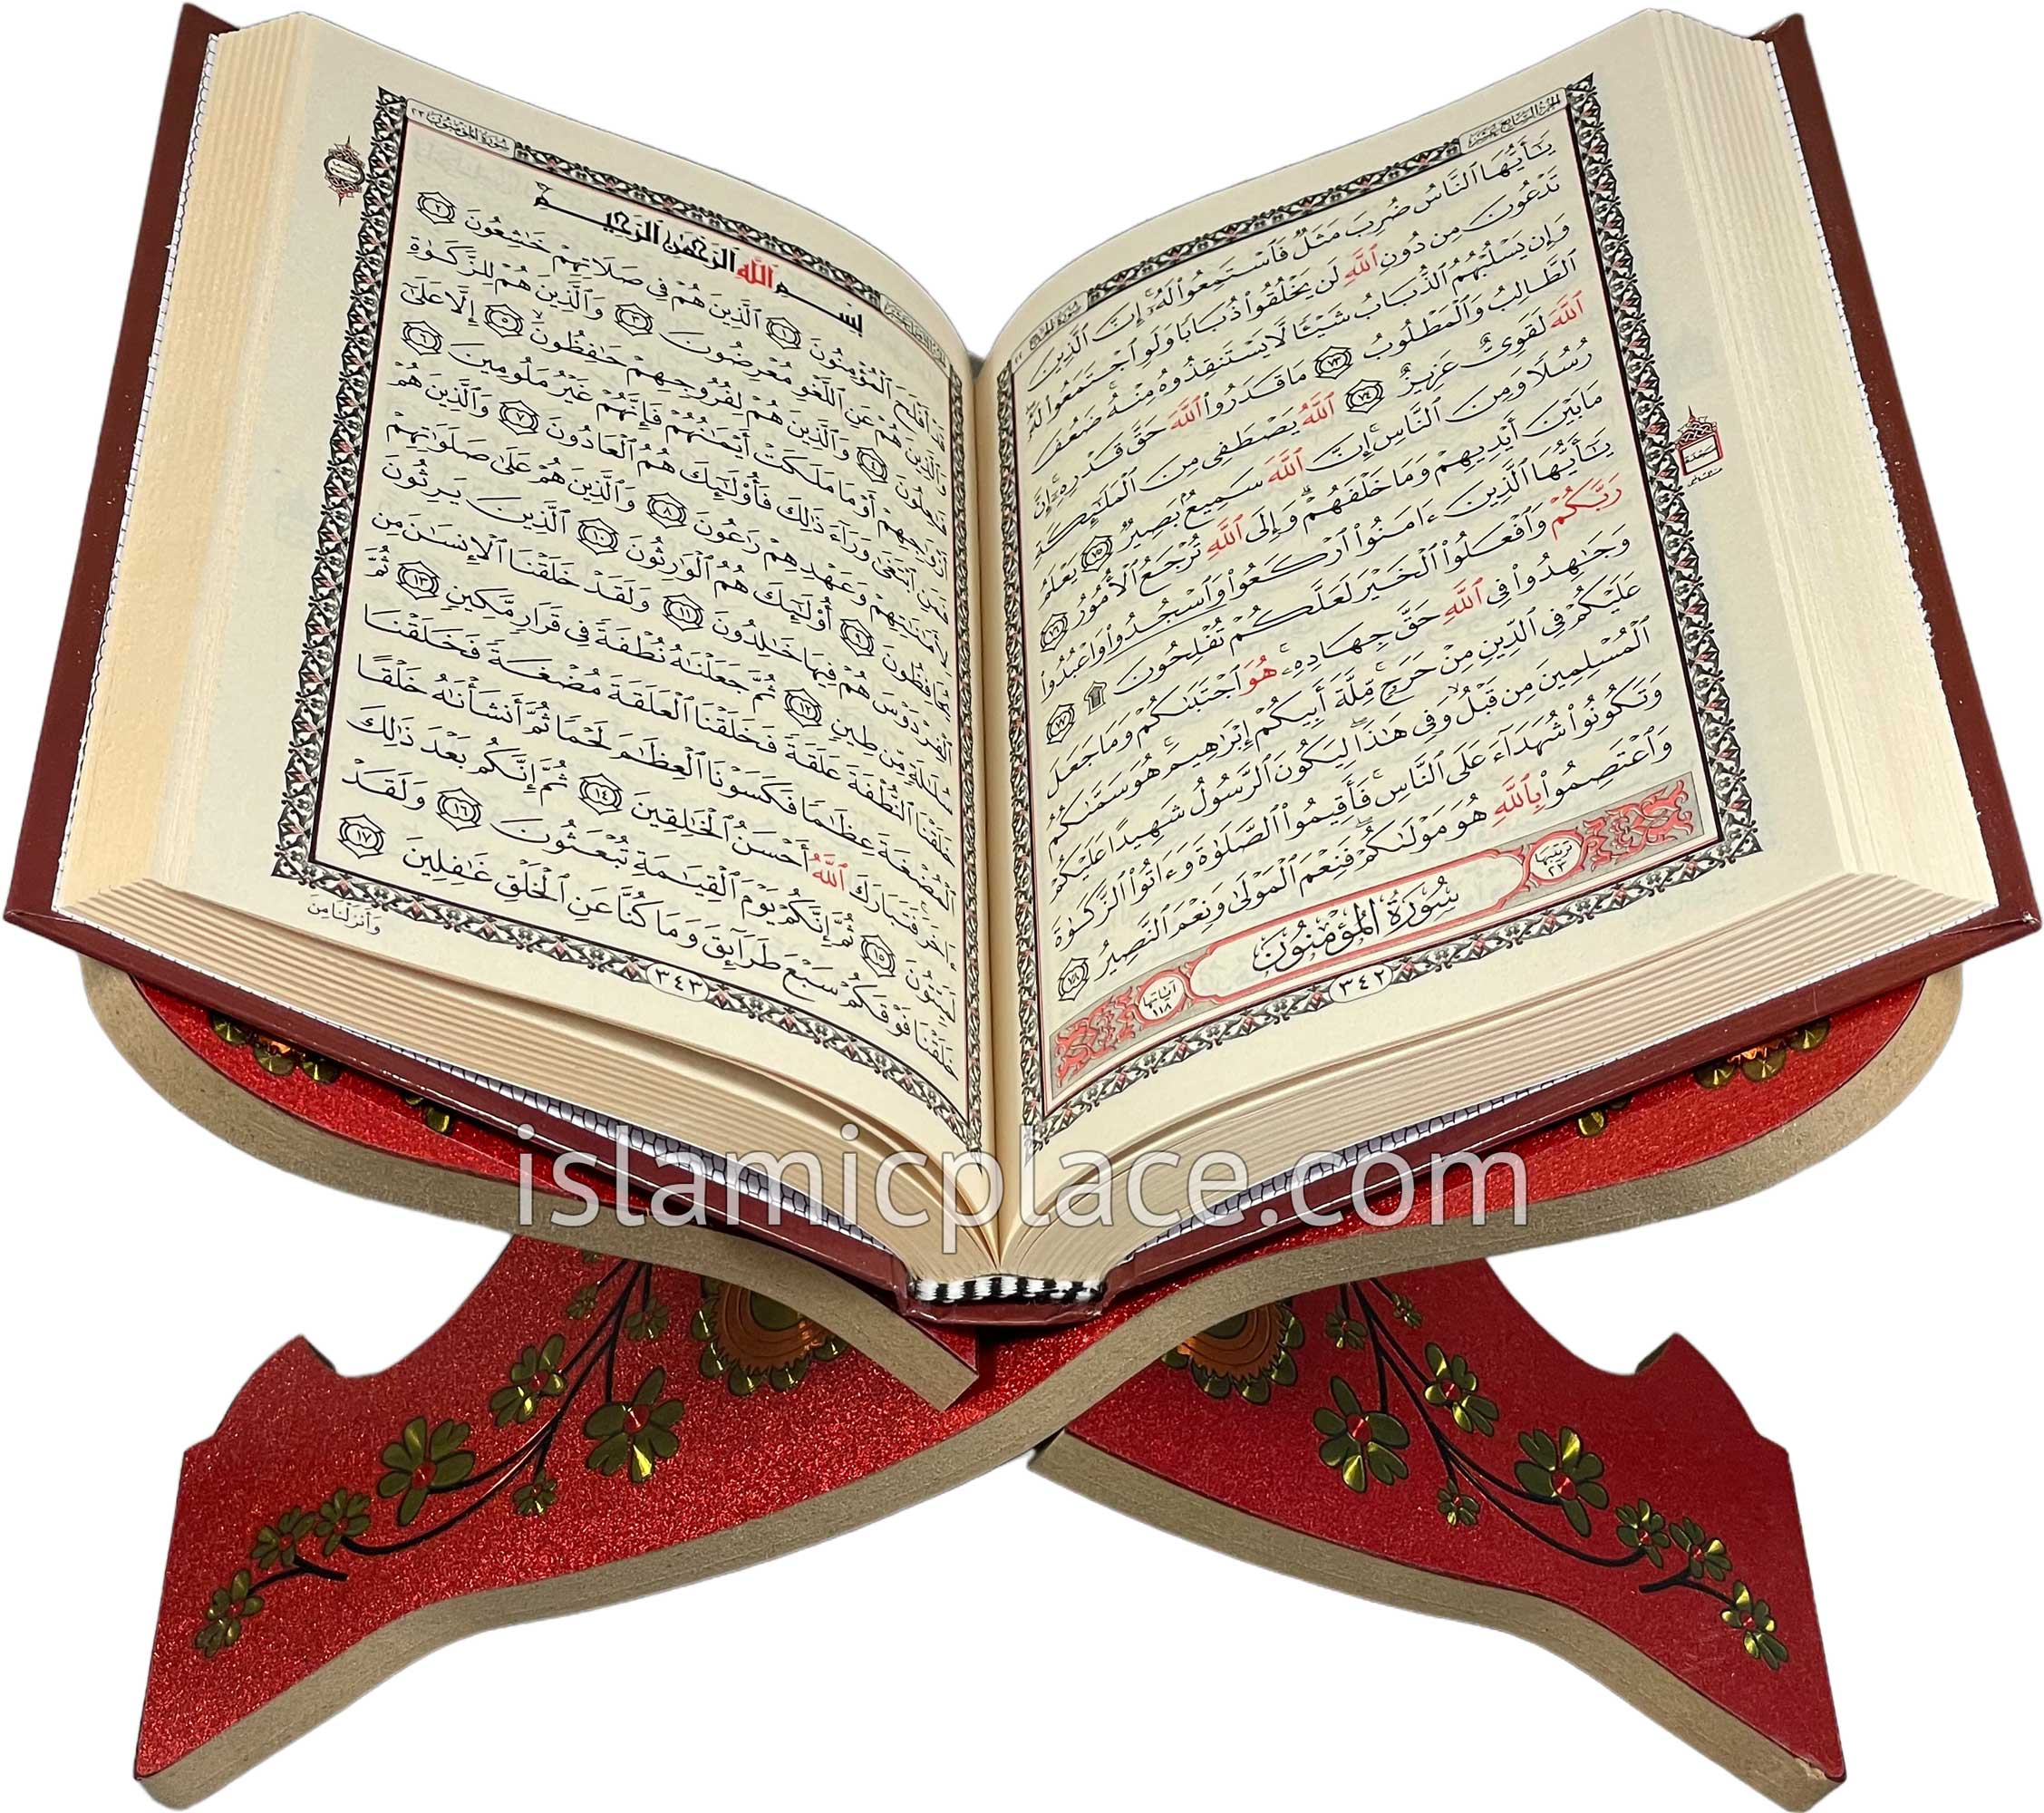 الجزء السابع عشر
سورة الحج ٢٢
يَـٰٓأَيُّهَا ٱلنَّاسُ ضُرِبَ مَثَلٌ فَٱسْتَمِعُوا۟ لَهُۥٓ ۚ إِنَّ ٱلَّذِينَ
تَدْعُونَ مِن دُونِ ٱللَّهِ لَن يَخْلُقُوا۟ ذُبَابًا وَلَوِ ٱجْتَمَعُوا۟ لَهُۥ ۖ
وَإِن يَسْلُبْهُمُ ٱلذُّبَابُ شَيْـًٔا لَّا يَسْتَنقِذُوهُ مِنْهُ ۚ ضَعُفَ
ٱلطَّالِبُ وَٱلْمَطْلُوبُ ٧٣ مَا قَدَرُوا۟ ٱللَّهَ حَقَّ قَدْرِهِۦٓ ۗ إِنَّ
ٱللَّهَ لَقَوِىٌّ عَزِيزٌ ٧٤ ٱللَّهُ يَصْطَفِى مِنَ ٱلْمَلَـٰٓئِكَةِ
رُسُلًا وَمِنَ ٱلنَّاسِ ۚ إِنَّ ٱللَّهَ سَمِيعٌۢ بَصِيرٌ ٧٥ يَعْلَمُ
مَا بَيْنَ أَيْدِيهِمْ وَمَا خَلْفَهُمْ ۗ وَإِلَى ٱللَّهِ تُرْجَعُ ٱلْأُمُورُ ٧٦
يَـٰٓأَيُّهَا ٱلَّذِينَ ءَامَنُوا۟ ٱرْكَعُوا۟ وَٱسْجُدُوا۟ وَٱعْبُدُوا۟
رَبَّكُمْ وَٱفْعَلُوا۟ ٱلْخَيْرَ لَعَلَّكُمْ تُفْلِحُونَ ۩ ٧٧
وَجَـٰهِدُوا۟ فِى ٱللَّهِ حَقَّ جِهَادِهِۦ ۚ هُوَ ٱجْتَبَىٰكُمْ وَمَا جَعَلَ
عَلَيْكُمْ فِى ٱلدِّينِ مِنْ حَرَجٍ ۚ مِّلَّةَ أَبِيكُمْ إِبْرَٰهِيمَ ۚ هُوَ سَمَّىٰكُمُ
ٱلْمُسْلِمِينَ مِن قَبْلُ وَفِى هَـٰذَا لِيَكُونَ ٱلرَّسُولُ شَهِيدًا عَلَيْكُمْ
وَتَكُونُوا۟ شُهَدَآءَ عَلَى ٱلنَّاسِ ۚ فَأَقِيمُوا۟ ٱلصَّلَوٰةَ وَءَاتُوا۟ ٱلزَّكَوٰةَ
وَٱعْتَصِمُوا۟ بِٱللَّهِ هُوَ مَوْلَىٰكُمْ ۖ فَنِعْمَ ٱلْمَوْلَىٰ وَنِعْمَ ٱلنَّصِيرُ ٧٨
ترتيبها ٢٣ سُورَةُ المُؤْمِنُونَ آياتها ١١٨
٣٤٢
سجدة
سورة المؤمنون ٢٣
بِسْمِ ٱللَّهِ ٱلرَّحْمَـٰنِ ٱلرَّحِيمِ
قَدْ أَفْلَحَ ٱلْمُؤْمِنُونَ ١ ٱلَّذِينَ هُمْ فِى صَلَاتِهِمْ خَـٰشِعُونَ ٢
وَٱلَّذِينَ هُمْ عَنِ ٱللَّغْوِ مُعْرِضُونَ ٣ وَٱلَّذِينَ هُمْ لِلزَّكَوٰةِ
فَـٰعِلُونَ ٤ وَٱلَّذِينَ هُمْ لِفُرُوجِهِمْ حَـٰفِظُونَ ٥ إِلَّا عَلَىٰٓ
أَزْوَٰجِهِمْ أَوْ مَا مَلَكَتْ أَيْمَـٰنُهُمْ فَإِنَّهُمْ غَيْرُ مَلُومِينَ ٦
فَمَنِ ٱبْتَغَىٰ وَرَآءَ ذَٰلِكَ فَأُو۟لَـٰٓئِكَ هُمُ ٱلْعَادُونَ ٧ وَٱلَّذِينَ هُمْ
لِأَمَـٰنَـٰتِهِمْ وَعَهْدِهِمْ رَٰعُونَ ٨ وَٱلَّذِينَ هُمْ عَلَىٰ صَلَوَٰتِهِمْ
يُحَافِظُونَ ٩ أُو۟لَـٰٓئِكَ هُمُ ٱلْوَٰرِثُونَ ١٠ ٱلَّذِينَ يَرِثُونَ
ٱلْفِرْدَوْسَ هُمْ فِيهَا خَـٰلِدُونَ ١١ وَلَقَدْ خَلَقْنَا ٱلْإِنسَـٰنَ مِن
سُلَـٰلَةٍ مِّن طِينٍ ١٢ ثُمَّ جَعَلْنَـٰهُ نُطْفَةً فِى قَرَارٍ مَّكِينٍ ١٣ ثُمَّ
خَلَقْنَا ٱلنُّطْفَةَ عَلَقَةً فَخَلَقْنَا ٱلْعَلَقَةَ مُضْغَةً فَخَلَقْنَا
ٱلْمُضْغَةَ عِظَـٰمًا فَكَسَوْنَا ٱلْعِظَـٰمَ لَحْمًا ثُمَّ أَنشَأْنَـٰهُ خَلْقًا
ءَاخَرَ ۚ فَتَبَارَكَ ٱللَّهُ أَحْسَنُ ٱلْخَـٰلِقِينَ ١٤ ثُمَّ إِنَّكُم بَعْدَ ذَٰلِكَ
لَمَيِّتُونَ ١٥ ثُمَّ إِنَّكُمْ يَوْمَ ٱلْقِيَـٰمَةِ تُبْعَثُونَ ١٦ وَلَقَدْ
خَلَقْنَا فَوْقَكُمْ سَبْعَ طَرَآئِقَ وَمَا كُنَّا عَنِ ٱلْخَلْقِ غَـٰفِلِينَ ١٧
٣٤٣
وَأَنزَلْنَا مِنَ
islamicplace.com